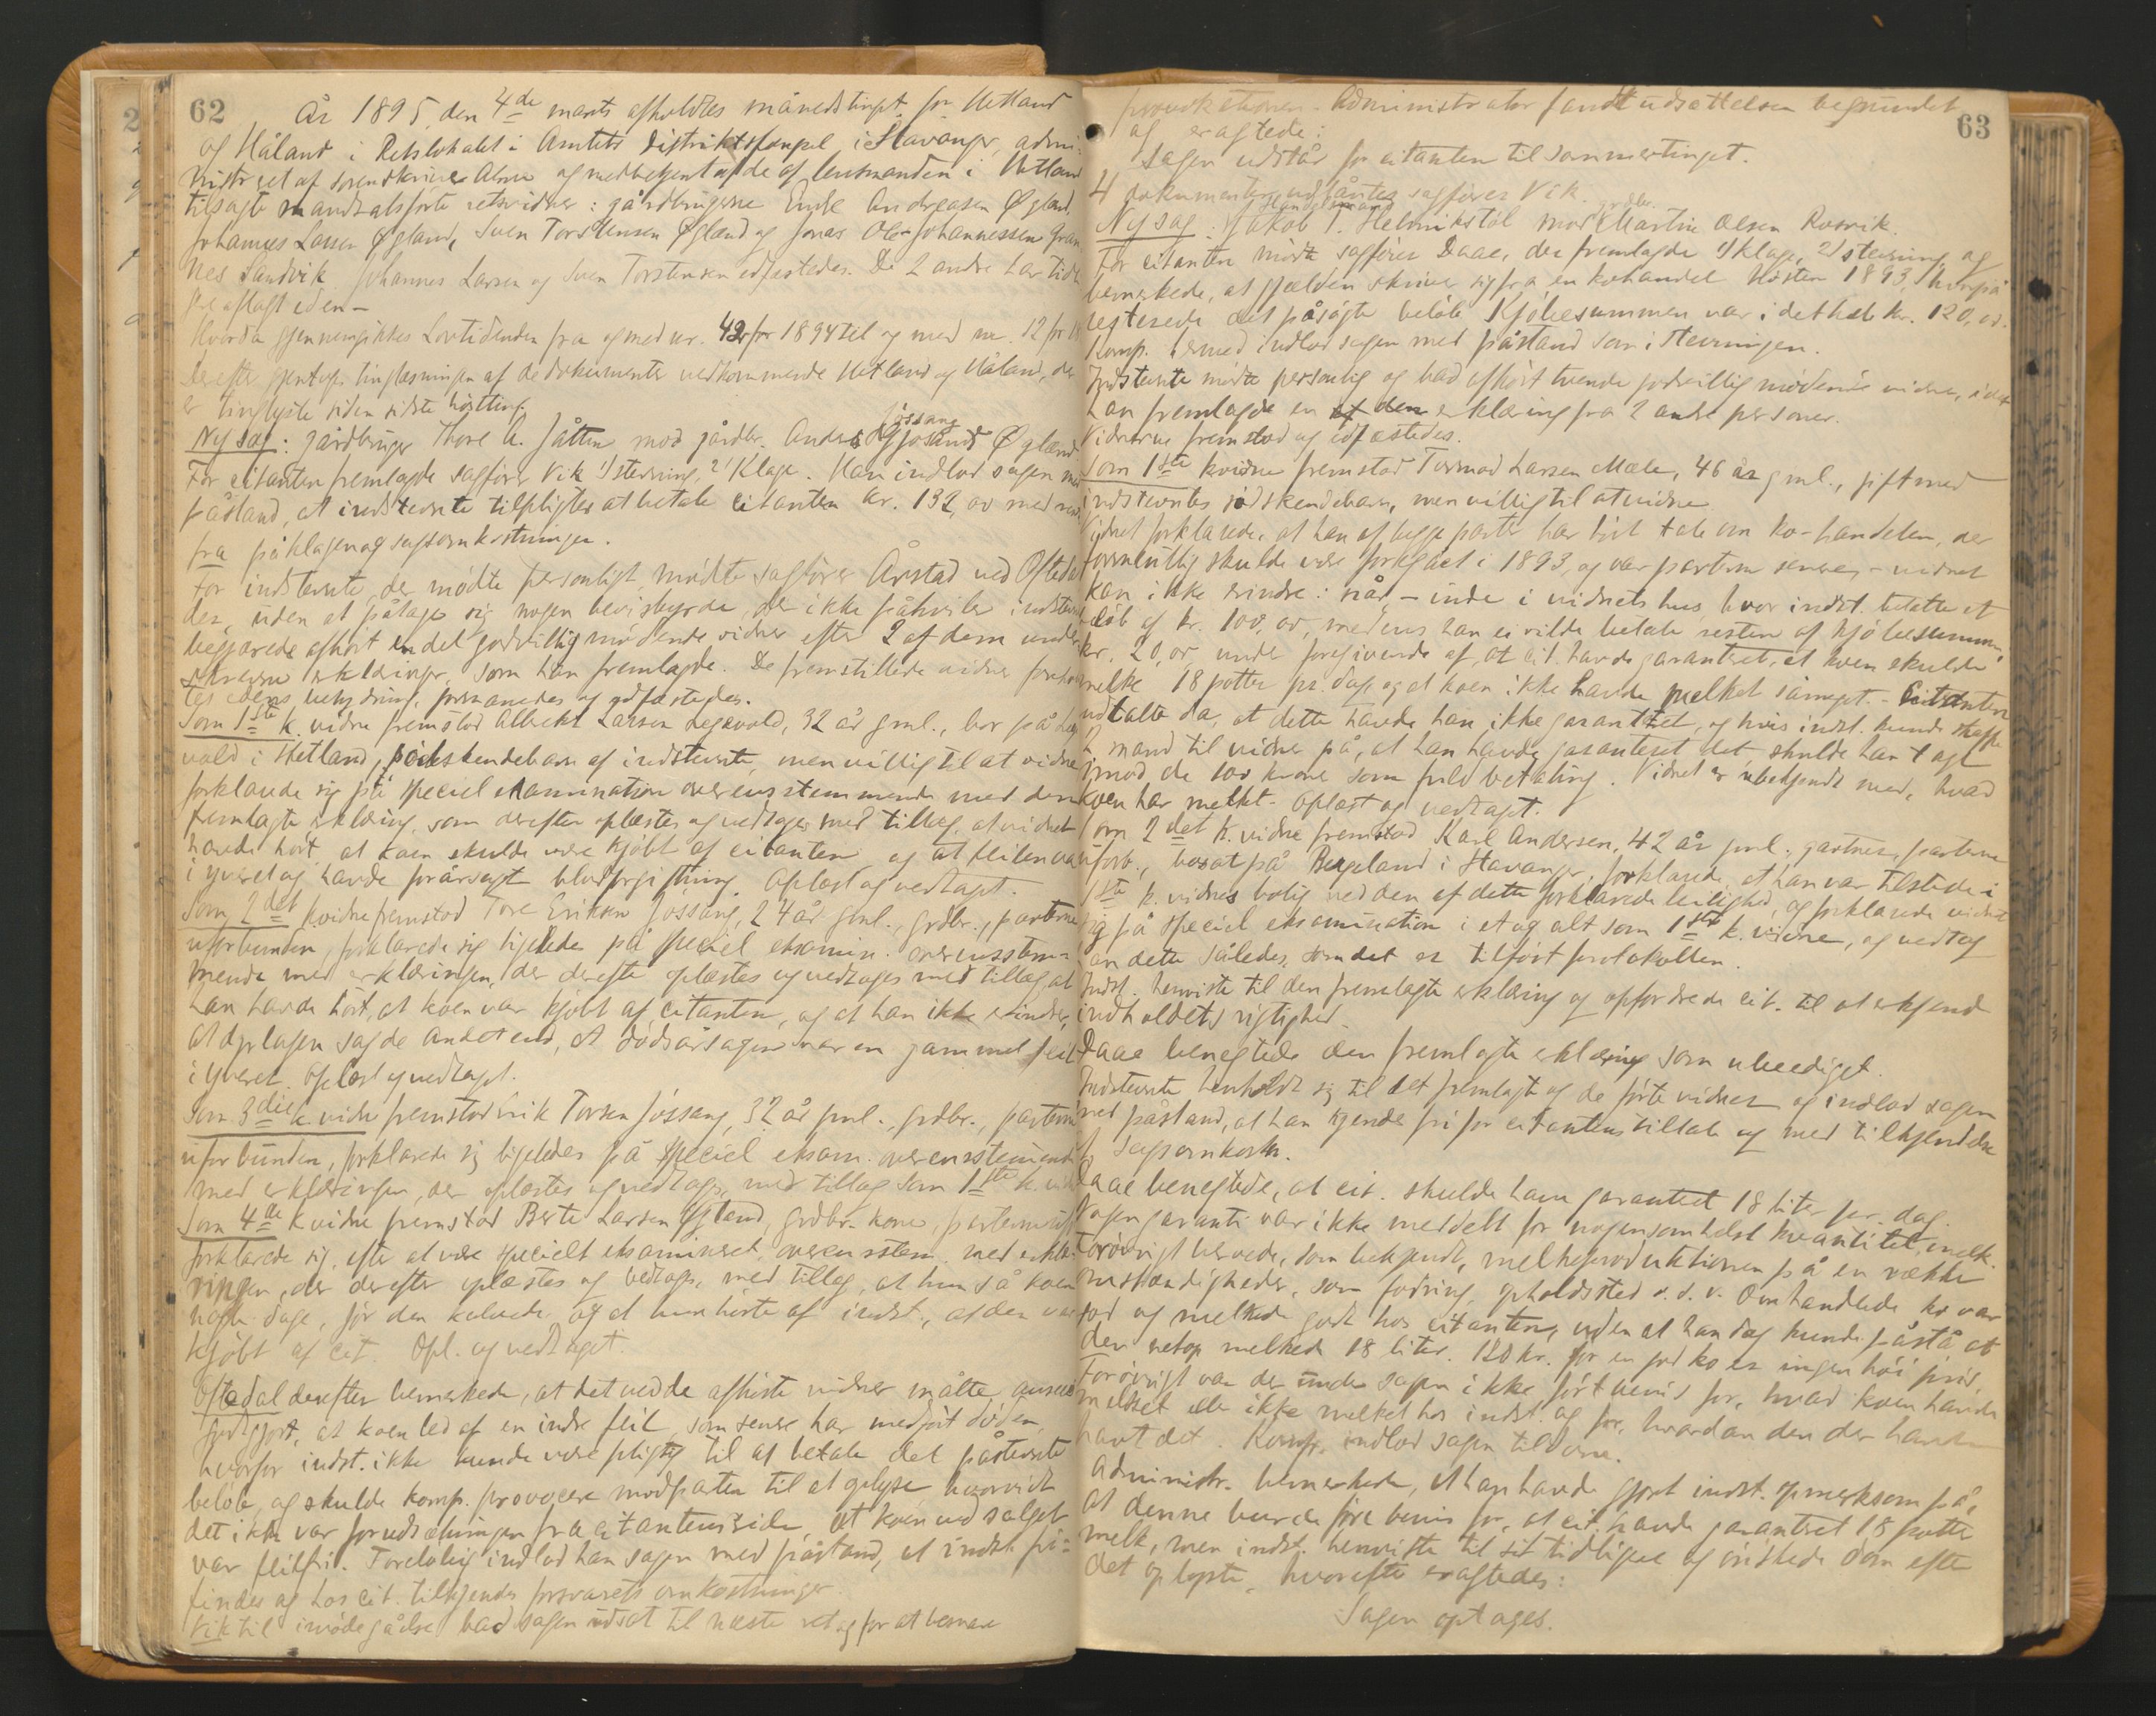 62
År 1895, den 4de marts afholdtes månedstinget for Hetland
og Håland i Retslokalet i Amtets Distriktsfængsel i Stavanger, admi-
nistreret af sorenskriver og medbetjent af de af lensmanden i Hetland
tilsagte mandtalsførte retsvidner: gårdbrugerne Endre Andreasen Øgland,
Johannes Larsen Øgland, Sven Torstensen Øgland og Jonas Ole Johannessen Gran
nes Sandvik. Johannes Larsen og Sven Torstensen edfæstedes. De 2 andre har tidli
gere aflagt eden –
Hvorda gjennemgikkes Lovtidenden fra og med nr. 42 for 1894 til og med nr. 12 for
Derefter gjentoges tinglæsningen af de dokumenter vedkommende Hetland og Håland, der
er tinglyste siden sidste høstting.
Jøssang
Ny sag: gårdbruger Thore A. Jåtten mod gårdbr. Andreas Øgland
For citanten fremlagde sagfører Vik 1) stevning, 2) Klage. Han indlod sagen med
påstand, at indstevnte tilpligtes at betale citanten kr. 132,00 med renter
fra påklagen og sagsomkostninger.
For indstevnte, der mødte personligt, mødte sagfører Årstad ved Oftedal
der, uden at påtage sig nogen bevisbyrde, der ikke påhviler indstevnte
begjærede afhørt endel godvillig mødende vidner efter 2 af dem under
skrevne erklæringer, som han fremlagde. De fremstillede vidner foreholdt
tes edens betydning, formanedes og edfæstedes.
Som 1ste k. vidne fremstod Albert Larsen Legevold, 32 år gml., bor på Leg
vold i Hetland, sødskendebarn af indstevnte, men villig til at vidne
forklarede sig på speciel examination overensstemmende med den
fremlagte erklæring, som derefter oplæstes og vedtoges med tillæg, at vidnet
havde hørt, at koen skulde være kjøbt af citanten og at feilen var
i yveret og havde forårsaget blodforgiftning. Oplæst og vedtaget.
Som 2det k. vidne fremstod Tore Eriksen Jossang, 24 år gml., grdbr., parterne
uforbunden, forklarede sig ligeledes på speciel eksamin. overensstem-
mende med erklæringen, der derefter oplæstes og vedtoges med tillæg, at
han havde hørt, at koen var kjøbt af citanten, og at han ikke erindrer,
at dyrlægen sagde andet end, at dødsårsagen var en gammel feil
i yveret. Oplæst og vedtaget.
Som 3die k. vidne fremstod Erik Torsen Jössang, 32 år gml., grdbr., parterne
uforbunden, forklarede sig ligeledes på speciel eksam. overensstemmende
med erklæringen, der oplæstes og vedtoges, med tillæg som 1ste k. vidne
Som 4de k. vidne fremstod Berte Larsen Øgland, grdbr. kone, parterne uf.
forklarede sig, efter at være specielt eksamineret, overensstem. med erklæ-
ringen, der derefter oplæstes og vedtoges, med tillæg, at hun så koen
nogle dage, før den kalvede og at hun hørte af indst., at den var
kjöbt af cit. Opl. og vedtaget.
Oftedal derefter bemerkede, at det ved de afhørte vidner måtte ansees
godtgjort, at koen led af en indre feil, som senere har medført døden,
hvorfor indst. ikke kunde være pligtig til at betale det påstevnte
beløb, og skulde komp. provocere modparten til at oplyse, hvorvidt
det ikke var forudsætningen fra citantens side, at koen ved salget
var feilfri. Foreløbig indlod han sagen med påstand, at indst. fri-
findes og hos cit. tilkjendes forsvarets omkostninger.
Vik til imødegåelse bad sagen udsat til næste ret og for at besvare
63
provokationen. Administrator fandt udsættelsen begrundet
og eragtede:
Sagen udstår for citanten til sommertinget.
4 dokumenter udlåntes sagfører Vik.
grdbr.
Ny sag: Jakob T. Helvikstøl mod Martin Olsen Rosvik.
For citanten mødte sagfører Daae, der fremlagde 1) klage, 2) stevning og
bemerkede, at gjælden skriver sig fra en kohandel høsten 1893, hvorpå
resterede det påsøgte beløb. Kjøbesummen var i det hele kr. 120,00.
Komp. hermed indlod sagen med påstand som i stevningen.
Indstevnte mødte personlig og bad afhørt tvende godvillig mødende vidner, idet
han fremlagde en af den erklæring fra 2 andre personer.
Vidnerne fremstod og edfæstedes.
Som 1ste k. vidne fremstod Tormod Larsen Mæle, 46 år gml., gift med
indstevntes sødskendebarn, men villig til at vidne.
Vidnet forklarede, at han af begge parter har hørt tale om ko-handelen, der
formentlig skulde være foregået i 1893, og var parterne senere, – vidnet
kan ikke erindre: når – inde i vidnets hus, hvor indst. betalte et
beløb af kr. 100,00, medens han ei vilde betale resten af kjøbesummen,
kr. 20,00, under foregivende af, at cit. havde garanteret, at koen skulde
melke 18 potter pr. dag, og at koen ikke havde melket så meget. – Citanten
udtalte da, at dette havde han ikke garantert, og hvis indst. kunde skaffe
2 mand til vidner på, at han havde garanteret det, skulde han tage
imod de 100 kroner som fuld betaling. Vidnet er ubekjendt med, hvad
koen har melket. Oplæst og vedtaget.
Som 2det k. vidne fremstod Karl Andersen, 42 år gml., gartner, parterne
uforb., bosat på Bergeland i Stavanger, forklarede, at han var tilstede i
1ste k. vidnes bolig ved den af dette forklarede leilighed, og forklarede vidnet
sig på speciel eksamination i et og alt som 1ste k. vidne, og vedtog
han dette således, som det er tilført protokollen.
Indst. henviste til den fremlagte erklæring og opfordrede cit. til at erkjende
indholdets rigtighed.
Daae benegtede den fremlagte erklæring som ubeediget.
Indstevnte henholdt sig til det fremlagte og de førte vidner og indlod sagen
med påstand, at han kjendes fri for citantens tiltale og med tilkjendelse
af sagsomkostn.
Daae benegtede, at cit. skulde have garanteret 18 liter per dag.
Nogen garanti var ikke meddelt for nogensomhelst kvantitet melk.
Forøvrigt beroede, som bekjendt, melkeproduktionen på en række
omstændigheder, som fodring, opholdssted o.s.v. Omhandlede ko var
god og melkede godt hos citanten, uden at han dog kunde påstå at
den netop melkede 18 liter. 120 kr. for en god ko er ingen høi pris.
Forøvrigt var der under sagen ikke ført bevis for, hvad koen havde
melket eller ikke melket hos indst. og for, hvordan den der havde
havt det. Komp. indlod sagen til doms.
Administr. bemerkede, at han havde gjort indst. opmerksom på,
at denne burde føre bevis for, at cit. havde garanteret 18 potter
melk, men indst. henviste til sit tidligere og ønskede dom efter
det oplyste, hvorefter eragtedes:
Sagen optages.